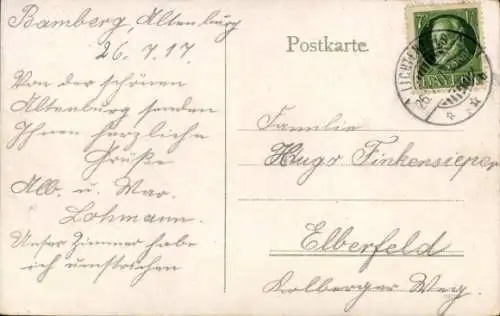 Bamberg, Altenburg
26. 7. 17.
Von der schönen
Altenburg senden
Ihnen herzliche
Grüße
Alb. u. Mar.
Lohmann.
Unser Zimmer habe
ich umstrichen
Postkarte.
Familie
Hugo Finkensieper
Elberfeld
Kolberger Weg.
LICHTEN
26
BAYERN